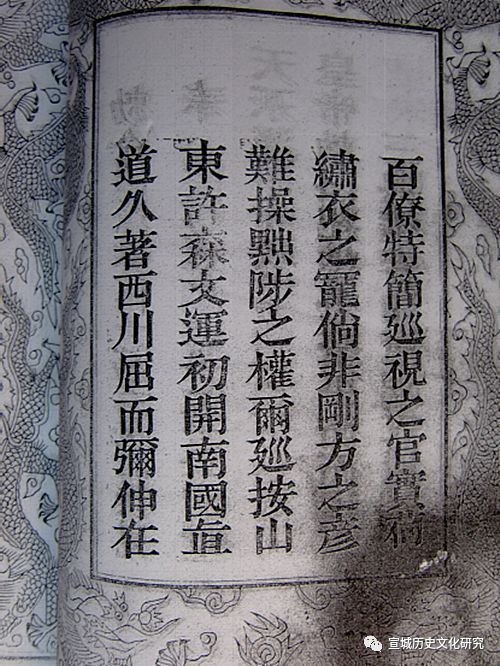 百僚特簡廵視之官實荷
繡衣之寵倘非剛方之彥
難操黜陟之權爾廵按山
東許森文運初開南國直
道久著西川屈而彌伸在
宣城历史文化研究